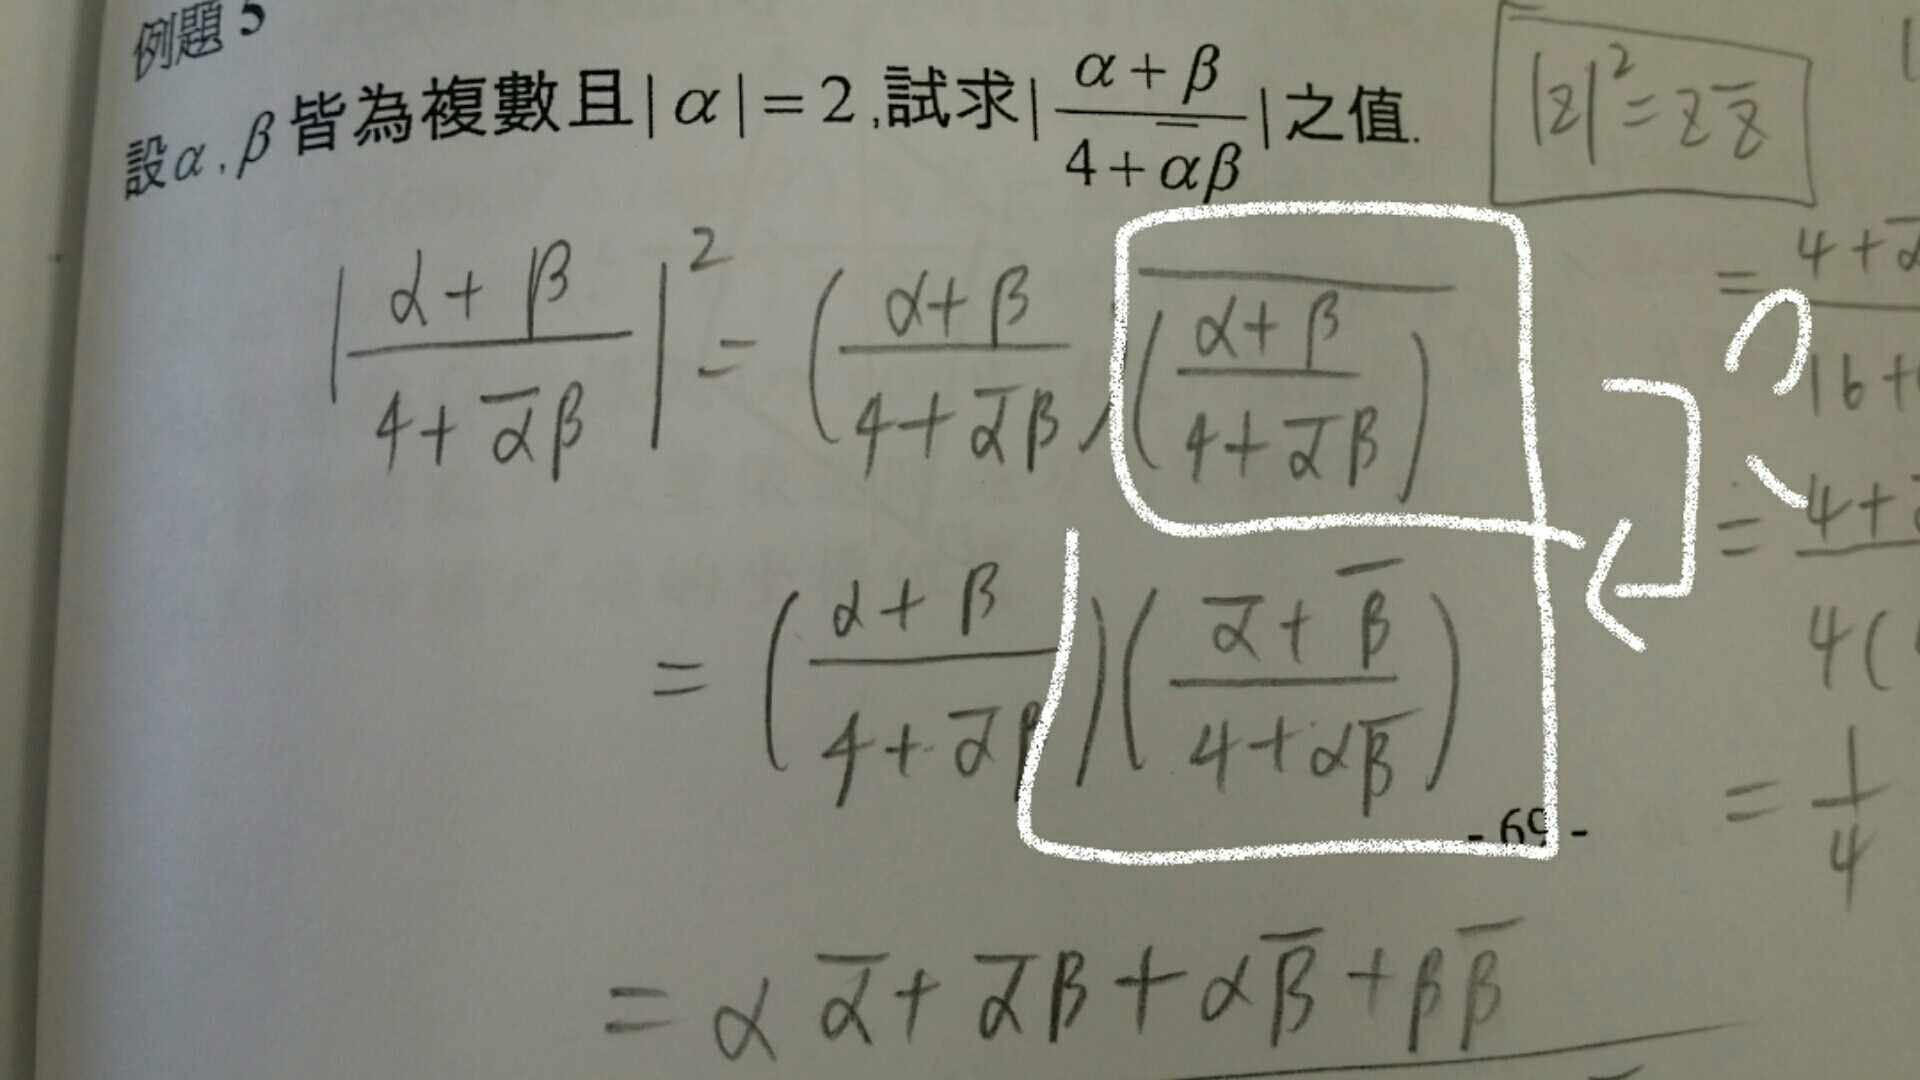 例題 5
設α, β皆為複數且|α|=2,試求|(α+β)/(4+α̅β)|之值.
|z|²=zz̅
|(α+β)/(4+α̅β)|² = ((α+β)/(4+α̅β)) \overline{((α+β)/(4+α̅β))}
= ((α+β)/(4+α̅β))((α̅+β̅)/(4+αβ̅))
- 69 -
= αα̅+α̅β+αβ̅+ββ̅
= 4+α̅
16+
?
= 4+α̅
4(
= 1/4